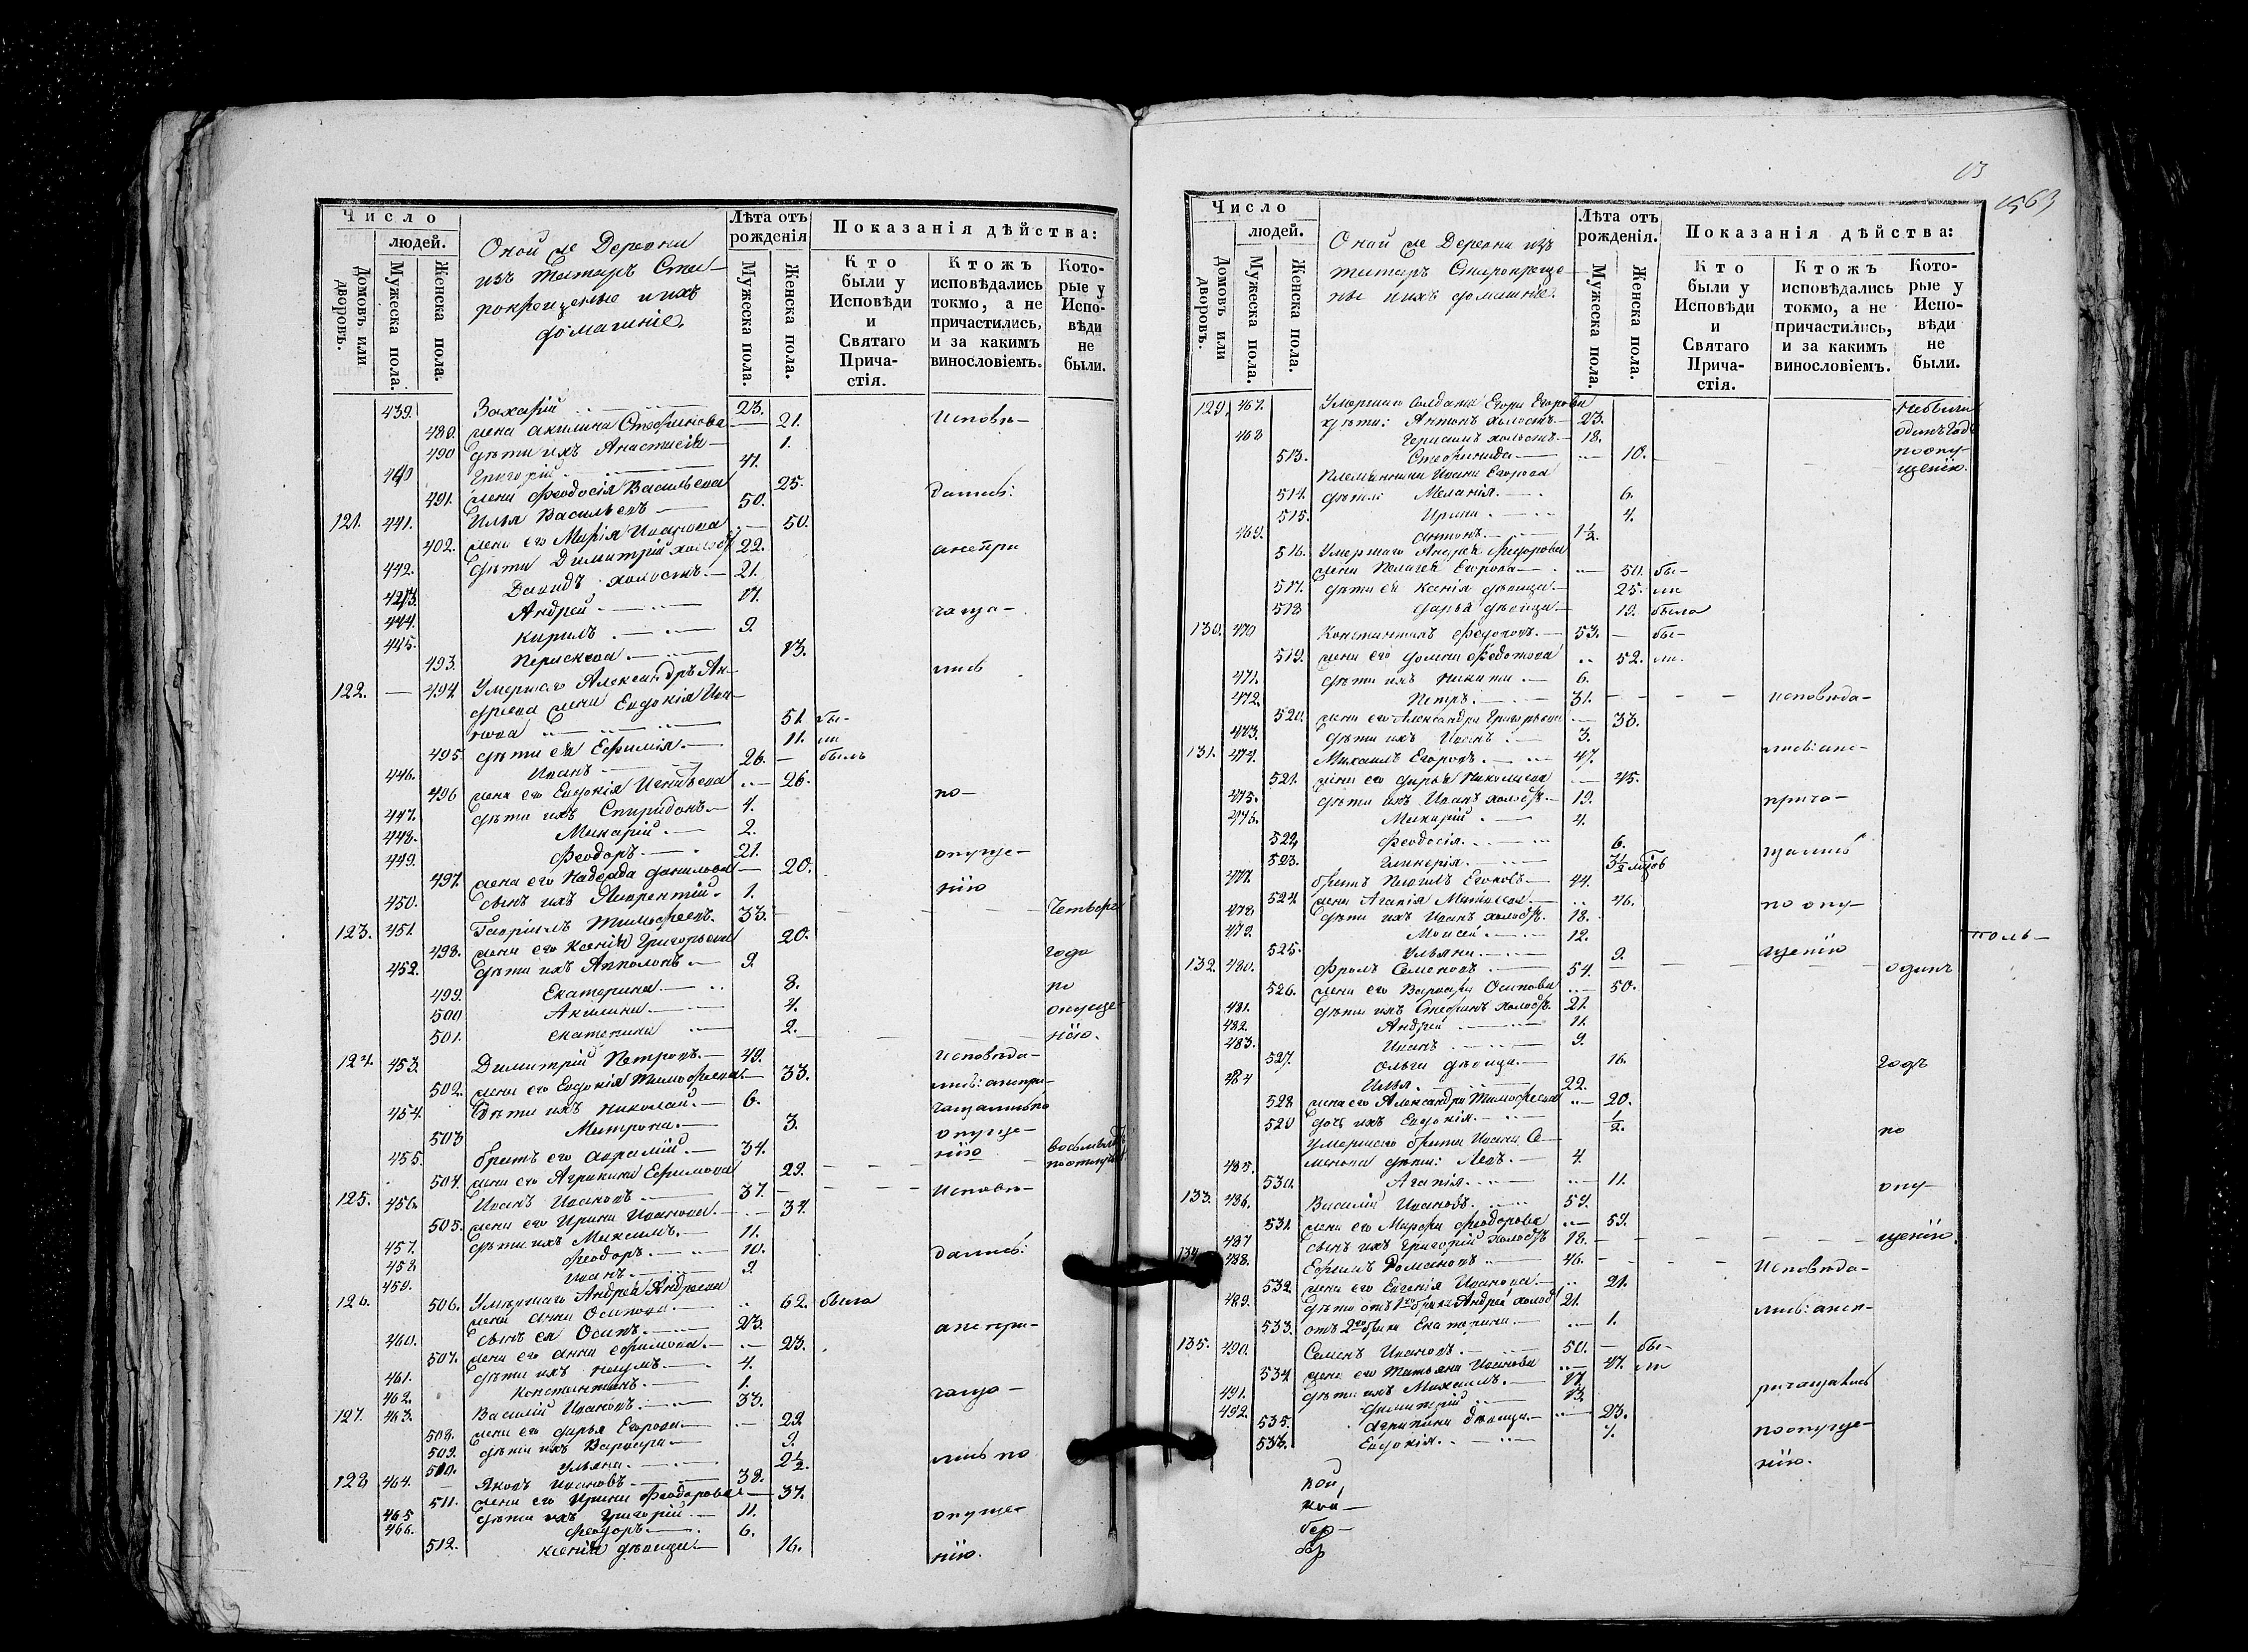 Число
людей.
Домовъ или дворовъ.
Мужеска пола.
Женска пола.
Оной же Деревни
изъ татаръ Ста-
рокрещеные и ихъ
домашніе.
Лѣта отъ
рожденія
Мужеска пола.
Женска пола.
Показанія дѣйства:
Кто
были у
Исповѣди
и
Святаго
Прича-
стія.
Ктожъ
исповѣдались
токмо, а не
причастились,
и за какимъ
винословіемъ.
Кото-
рые у
Испо-
вѣди
не
были.
439. Захарій 23.
489. жена Акилина Стефанова 21. исповѣ-
490 дѣти ихъ Анастасія 1.
440 Григорій 41.
491. жена Феодосія Васильева 25. дались:
121. 441. Илья Васильевъ 50.
402. жена его Марія Иванова 50.
442. дѣти Димитрій холостъ 22. а не при
443. Давидъ холостъ. 21.
444. Андрей 17. чаща-
445. Кирилъ 9.
493. Параскева 13. лись
122. 494. Умершаго Александръ Ан-
дреева жена Евдокія Ива-
нова 51. бы-
495. дѣти ея Ефимія. 11. ли
446. Иванъ 26. былъ
496 жена его Евдокія Игнатьева 26. по-
447. дѣти ихъ Спиридонъ 4.
448. Макарій. 2.
449. Феодоръ 21. опуще-
497. жена его Надежда Данилова 20.
450. сынъ ихъ Лаврентій. 1. нію
123. 451. Гавріилъ Тимофеевъ. 33. Четверо
498. жена его Ксенія Григорьева 20. года
452. дѣти ихъ Апполонъ 9.
499. Екатерина 8. по
500 Акилина 4. опуще-
501. екатерина 2. нію.
124. 453. Димитрій Петровъ. 49. исповѣда-
502. жена его Евдокія Тимофеева 33. лись: а не при-
454. Дѣти ихъ Николай. 6. чащались по
503 Матрона. 3. опуще-
455. братъ его Авраамій. 34. нію
504. жена его Агрипина Ефимова 29.
125. 456. Иванъ Ивановъ 37. Исповѣ-
505. жена его Ирина Иванова. 34.
457. дѣти ихъ Максимъ. 11.
458 Феодоръ 10. дались:
459. Иванъ 9.
126. 506. Умершаго Андрея Андреева
жена Анна Осипова. 62. была
460. сынъ ея Осипъ. 23. а не при-
507. жена его Анна Ефимова. 23.
461. дѣти ихъ Наумъ. 4.
462. Константинъ. 1. чаща-
127. 463. Василій Ивановъ 33.
508. жена его Дарья Егорова 29
509. дѣти ихъ Варвара 9.
510. Ульяна. 2½. лись по
128 464. Яковъ Ивановъ 38.
511. жена его Ирина Феодорова 37.
465 дѣти ихъ Григорій. 11. опуще-
466. Феодоръ 6.
512. Ксенія дѣвица 16. нію.
563
Число
людей.
Домовъ или дворовъ.
Мужеска пола.
Женска пола.
Оной же Деревни изъ
татаръ Старокреще-
ные и ихъ домашніе.
Лѣта отъ
рожденія.
Мужеска пола.
Женска пола.
Показанія дѣйства:
Кто
были у
Исповѣди
и
Святаго
Прича-
стія.
Ктожъ
исповѣдались
токмо, а не
причастились,
и за какимъ
винословіемъ.
Кото-
рые у
Испо-
вѣди
не
были.
129. 467. Умершаго Солдата Егора Егорова Небыли
дѣти: Антонъ холостъ 23. одинъ годъ
468 Герасимъ холостъ 18. по опу-
513. Степанида 10. щенію.
Племянника Ивана Егорова
514. дѣти: Меланія 6.
515. Ирина 4.
469. Антонъ 1½.
516. Умершаго Андрея Федорова
жена Пелагея Егорова 50. бы-
517. дѣти ея Ксенія дѣвица 25. ли
518 Дарья дѣвица 19. была
130. 470 Константинъ Федотовъ. 53. бы-
519. жена его Домна Федотова 52. ли.
471. дѣти ихъ Никита 6.
472. Петръ 31. исповѣда-
520. жена его Александра Григорьева 33.
473. дѣти ихъ Иванъ 3.
131. 474. Михаилъ Егоровъ. 47. лись: а не-
521. жена его Дарья Николаева 45.
475. дѣти ихъ Иванъ холостъ. 19. прича-
476. Макарій 4.
522. Феодосія 6. щались
523. Гликерія
477. братъ 44.
524. жена Агапія 46.
478 дѣти ихъ Иванъ холостъ. 18. по опу-
479. Моисей 12.
525. Ульяна 9. щенію
толь-
132. 480. Фролъ Семеновъ 54. одинъ
526. жена его Варвара Осипова 50.
481. дѣти ихъ Стефанъ холостъ. 21.
482. Андрей 11.
483. Иванъ 9.
527. Ольга дѣвица 16. годъ
484 Илья 22.
528 жена его Александра Тимофеева 20.
529 дочь ихъ Евдокія ½.
Умершаго брата Ивана Се- по
485. менова дѣти: Левъ. 4.
530. Агапія 11. опу-
133. 486. Василій Ивановъ 54.
531. жена его Марфа Феодорова 59.
487 сынъ ихъ Григорій холостъ 18. щенію.
134. 488. Ефимъ Романовъ 46. Исповѣда-
532. жена его Евгенія Иванова 21.
489. дѣти отъ 1го брака Андрей холостъ 21. лись: а не п-
533. отъ 2го брака Екатерина 1.
135. 490. Семенъ Ивановъ 50. бы-
534 жена его Татьяна Иванова 47. ли
491. дѣти ихъ Михаилъ. 17. ричащались
492. Димитрій 13.
535. Агрипина дѣвица 23. по опуще-
536. Евдокія 7. нію.